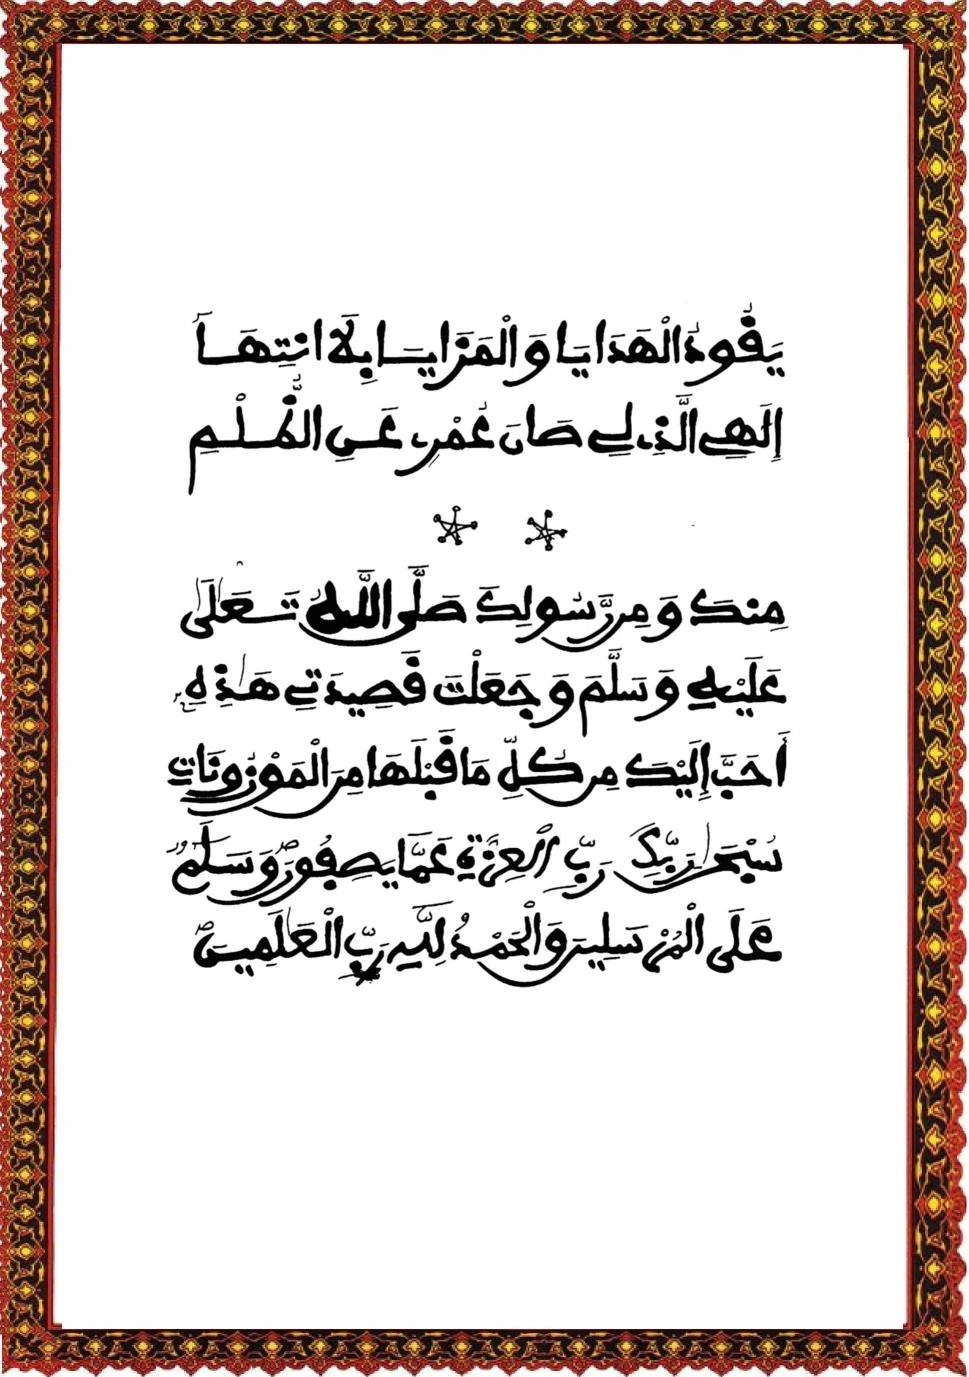 يَقُودُ الْهَدَايَا وَالْمَزَايَا بِلَا انْتِهَا
إِلَهِي الَّذِي لِي صَانَ عُمْرِي عَنِ الظُّلْمِ
مِنكَ وَمِن رَّسُولِكَ صَلَّى اللَّهُ تَعَالَى
عَلَيْهِ وَسَلَّمَ وَجَعَلْتَ قَصِيدَتِي هَذِهِ
أَحَبَّ إِلَيْكَ مِن كُلِّ مَا قَبْلَهَا مِنَ الْمَوْزُونَاتِ
سُبْحَانَ رَبِّكَ رَبِّ الْعِزَّةِ عَمَّا يَصِفُونَ وَسَلَامٌ
عَلَى الْمُرْسَلِينَ وَالْحَمْدُ لِلَّهِ رَبِّ الْعَالَمِينَ